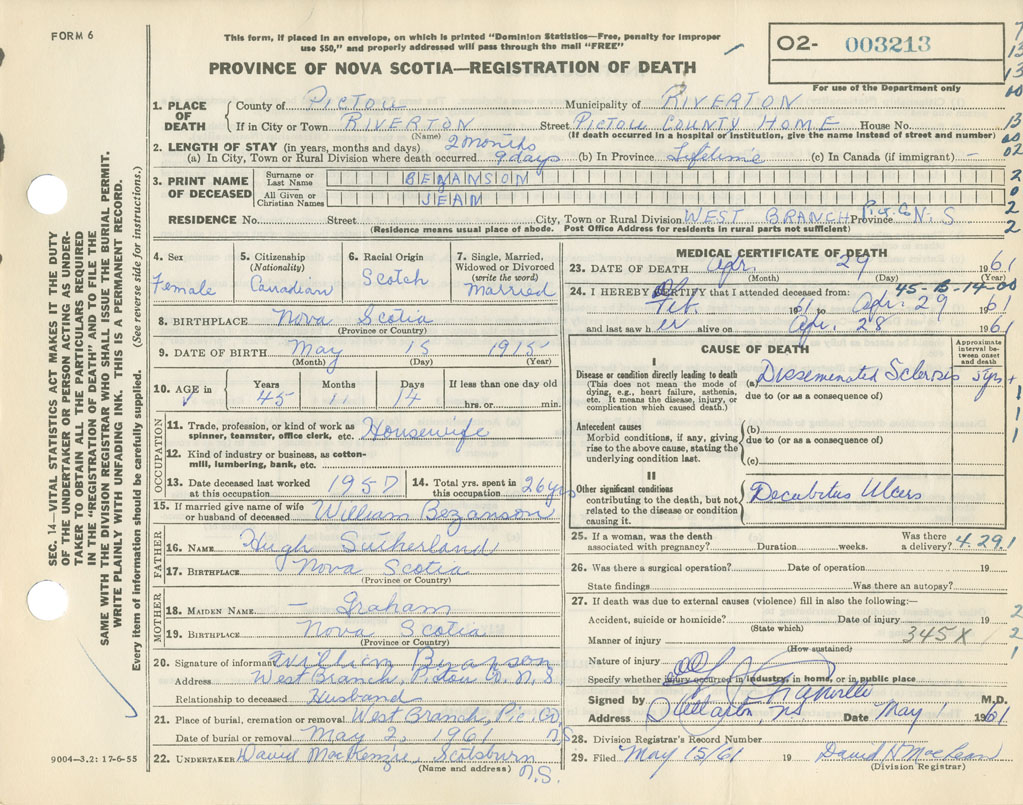 FORM 6
This form, if placed in an envelope, on which is printed "Dominion Statistics—Free, penalty for improper
use $50," and properly addressed will pass through the mail "FREE"
PROVINCE OF NOVA SCOTIA—REGISTRATION OF DEATH
O2- 003213
For use of the Department only
1. PLACE OF DEATH
County of Pictou Municipality of RIVERTON
If in City or Town RIVERTON Street PICTOU COUNTY HOME House No.
(Name) (If death occurred in a hospital or institution, give the name instead of street and number)
2. LENGTH OF STAY (in years, months and days) 2 months
(a) In City, Town or Rural Division where death occurred 9 days (b) In Province Lifetime (c) In Canada (if immigrant) —
3. PRINT NAME OF DECEASED
Surname or Last Name BEZANSON
All Given or Christian Names JEAN
RESIDENCE No. Street City, Town or Rural Division WEST BRANCH Pict. Co Province N. S
(Residence means usual place of abode. Post Office Address for residents in rural parts not sufficient)
4. Sex Female
5. Citizenship (Nationality) Canadian
6. Racial Origin Scotch
7. Single, Married, Widowed or Divorced (write the word) Married
8. BIRTHPLACE Nova Scotia
(Province or Country)
9. DATE OF BIRTH May 15 1915
(Month) (Day) (Year)
10. AGE in Years 45 Months 11 Days 14 If less than one day old hrs. or min.
OCCUPATION
11. Trade, profession, or kind of work as spinner, teamster, office clerk, etc. Housewife
12. Kind of industry or business, as cotton-mill, lumbering, bank, etc.
13. Date deceased last worked at this occupation 1957
14. Total yrs. spent in this occupation 26 yrs
15. If married give name of wife or husband of deceased William Bezanson
FATHER
16. NAME Hugh Sutherland
17. BIRTHPLACE Nova Scotia
(Province or Country)
MOTHER
18. MAIDEN NAME — Graham
19. BIRTHPLACE Nova Scotia
(Province or Country)
20. Signature of informant William Bezanson
Address West Branch, Pictou Co. N. S
Relationship to deceased Husband
21. Place of burial, cremation or removal West Branch, Pic. Co.
Date of burial or removal May 2, 1961 N.S.
22. UNDERTAKER David MacKenzie, Scotsburn
(Name and address) N.S.
9004—3.2: 17-6-55
MEDICAL CERTIFICATE OF DEATH
23. DATE OF DEATH Apr. 29 1961
(Month) (Day) (Year)
45-B-14-00
24. I HEREBY CERTIFY that I attended deceased from:
Feb. 1961 to Apr. 29 1961
and last saw her alive on Apr. 28 1961
CAUSE OF DEATH
Approximate interval between onset and death
I
Disease or condition directly leading to death
(This does not mean the mode of dying, e.g., heart failure, asthenia, etc. It means the disease, injury, or complication which caused death.)
(a) Disseminated Sclerosis 5 yrs +
due to (or as a consequence of)
Antecedent causes
Morbid conditions, if any, giving rise to the above cause, stating the underlying condition last.
(b)
due to (or as a consequence of)
(c)
II
Other significant conditions
contributing to the death, but not related to the disease or condition causing it.
Decubitus Ulcers
25. If a woman, was the death associated with pregnancy? Duration weeks. Was there a delivery? 4.29.1
26. Was there a surgical operation? Date of operation 19
State findings Was there an autopsy?
27. If death was due to external causes (violence) fill in also the following:—
Accident, suicide or homicide? Date of injury 19
(State which)
Manner of injury 345X
(How sustained)
Nature of injury
Specify whether injury occurred in industry, in home, or in public place
Signed by M.D.
Address Stellarton, NS Date May 1 1961
28. Division Registrar's Record Number
29. Filed May 15/61 19 David H MacLean
(Division Registrar)
SEC. 14—VITAL STATISTICS ACT MAKES IT THE DUTY
OF THE UNDERTAKER OR PERSON ACTING AS UNDER-
TAKER TO OBTAIN ALL THE PARTICULARS REQUIRED
IN THE "REGISTRATION OF DEATH" AND TO FILE THE
SAME WITH THE DIVISION REGISTRAR WHO SHALL ISSUE THE BURIAL PERMIT.
WRITE PLAINLY WITH UNFADING INK. THIS IS A PERMANENT RECORD.
Every item of information should be carefully supplied. (See reverse side for instructions.)